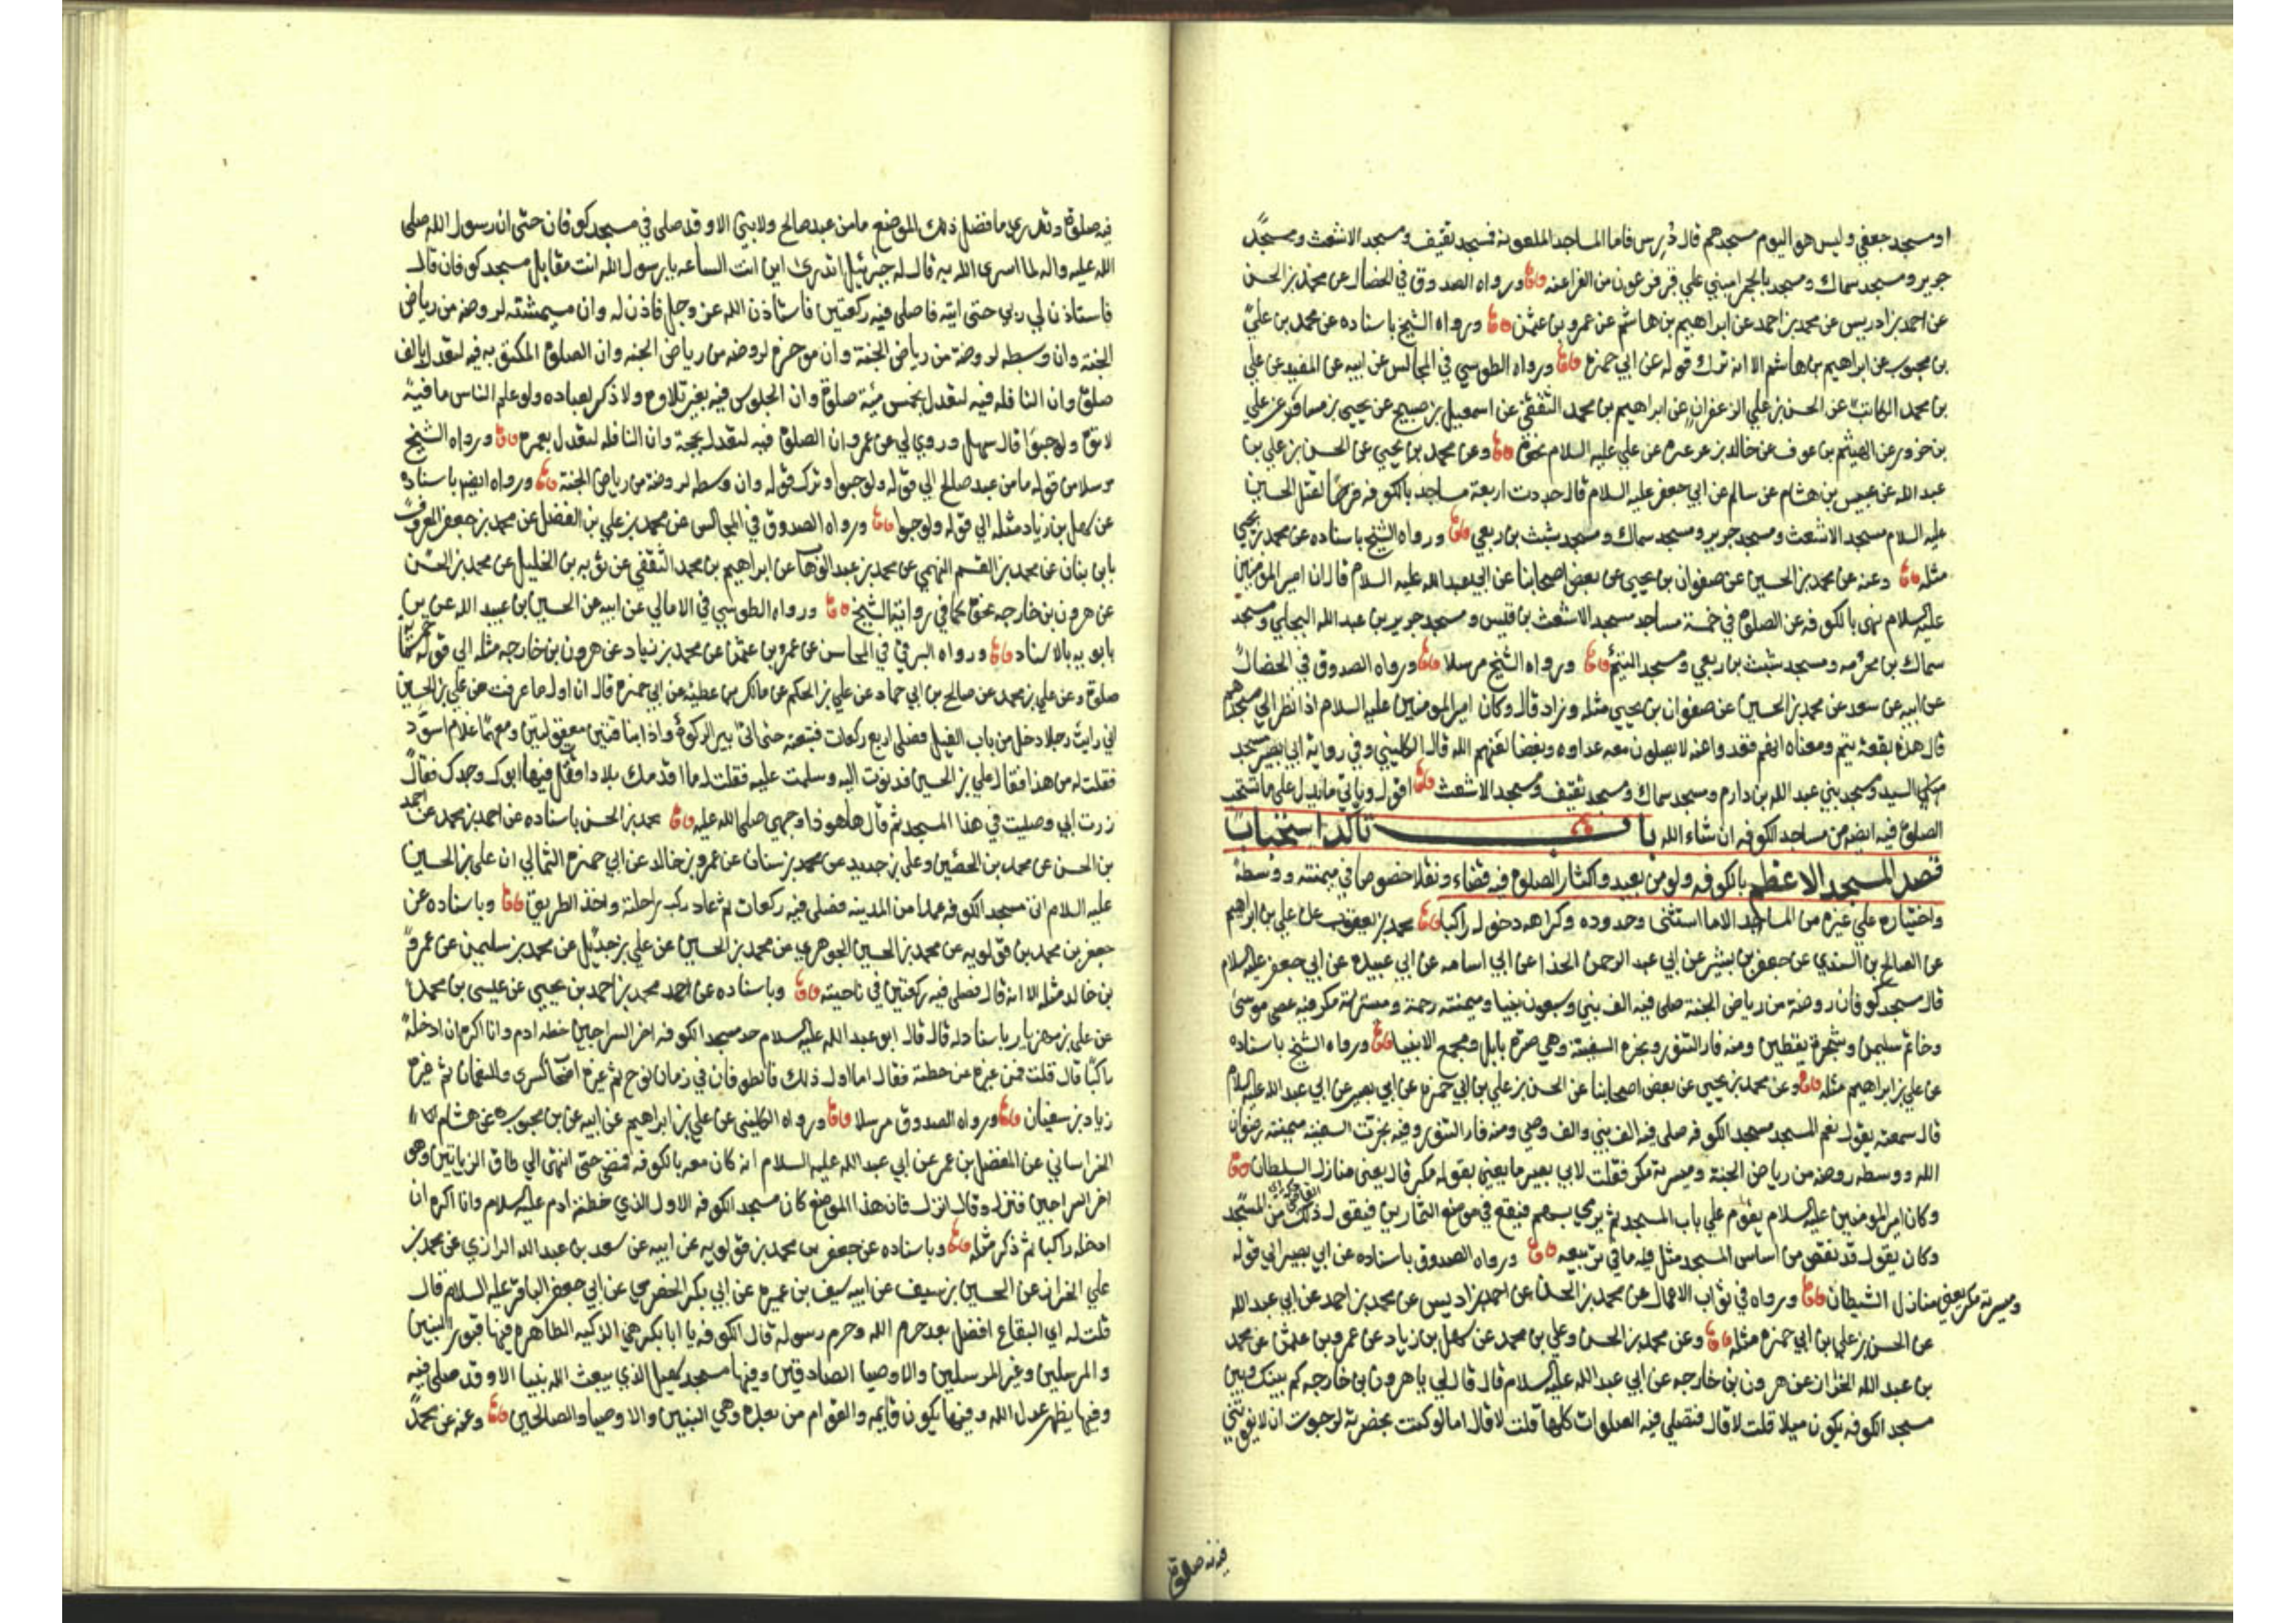 او مسجد جعفي وليس هو اليوم مسجدهم قال دُرِس فاما المساجد الملعونة فمسجد ثقيف ومسجد الاشعث ومسجد
جرير ومسجد سماك ومسجد بالحمرا بني علي قبر فرعون من الفراعنه ورواه الصدوق في الخصال عن محمد بن الحسن
عن احمد بن ادريس عن محمد بن احمد عن ابراهيم بن هاشم عن عمرو بن عثمن ورواه الشيخ باسناده عن محمد بن علي
بن محبوب عن ابراهيم بن هاشم الا انه ترك قوله عن ابي حمزه ورواه الطوسي في المجالس عن ابيه عن المفيد عن علي
بن محمد الكاتب عن الحسن بن علي الزعفراني عن ابراهيم بن محمد الثقفي عن اسمعيل بن صبيح عن يحيي بن مساور عن علي
بن حزور عن الهيثم بن عوف عن خالد بن عرعره عن علي عليه السلام نحوه وعن محمد بن يحيي عن الحسن بن علي بن
عبد الله عن عبيس بن هشام عن سالم عن ابي جعفر عليه السلام قال جددت اربعة مساجد بالكوفه فرحًا لقتل الحسين
عليه السلام مسجد الاشعث ومسجد جرير ومسجد سماك ومسجد شبث بن ربعي ورواه الشيخ باسناده عن محمد بن يحيي
مثله وعنه عن محمد بن الحسين عن صفوان بن يحيي عن بعض اصحابنا عن ابي عبد الله عليه السلام قال ان امير المومنين
عليه السلام نهى بالكوفه عن الصلوة في خمسة مساجد مسجد الاشعث بن قيس ومسجد جرير بن عبد الله البجلي ومسجد
سماك بن مخرمه ومسجد شبث بن ربعي ومسجد التيم ورواه الشيخ مرسلا ورواه الصدوق في الخصال
عن ابيه عن سعد عن محمد بن الحسين عن صفوان بن يحيي مثله وزاد قال وكان امير المومنين عليه السلام اذا نظر الي مسجدهم
قال هذه بقعة تيم ومعناه انهم قعدوا عنه لا يصلون معه عداوه وبغضا لعنهم الله قال الكليني وفي رواية ابي بصير مسجد
بني السيد ومسجد بني عبد الله بن دارم ومسجد سماك ومسجد ثقيف ومسجد الاشعث اقول وياتي ما يدل علي ما تستحب
الصلوة فيه ايضه من مساجد الكوفه ان شاء الله باب تاكد استحباب
قصد المسجد الاعظم بالكوفه ولو من بعيد واكثار الصلوة فيه فرضاء ونفلا خصوصا في ميمنته ووسطه
واختياره علي غيره من المساجد الا ما استثنى وحدوده وكراهه دخوله راكبا محمد بن يعقوب عن علي بن ابراهيم
عن الصالح بن السندي عن جعفر بن بشير عن ابي عبد الرحمن الحذا عن ابي اسامه عن ابي عبيده عن ابي جعفر عليه السلام
قال مسجد كوفان روضة من رياض الجنة صلى فيه الف نبي وسبعون نبيا وميمنته رحمة وميسرته مكر فيه عصى موسى
وخاتم سليمن وشجرة يقطين ومنه فار التنور ونجره السفينة وهي صرة بابل ومجمع الانبيا ورواه الشيخ باسناده
عن علي بن ابراهيم مثله وعن محمد بن يحيي عن بعض اصحابنا عن الحسن بن علي بن ابي حمزه عن ابي بصير عن ابي عبد الله عليه السلام
قال سمعته يقول نعم المسجد مسجد الكوفه صلى فيه الف نبي والف وصي ومنه فار التنور وفيه نجرت السفينه ميمنته رضوان
الله ووسطه روضه من رياض الجنة وميسرته مكر فقلت لابي بصير ما يعني بقوله مكر قال يعنى منازل السلطان
وكان امير المومنين عليه السلام يقوم علي باب المسجد ثم يرمي بسهم فيقع في موضع التمارين فيقول ذلك من المسجد
وكان يقول قد نقص من اساس المسجد مثل فيه ما في تربيعه ورواه الصدوق باسناده عن ابي بصير الي قوله
وميسرته مكر يعني منازل الشيطان ورواه في ثواب الاعمال عن محمد بن الحسن عن احمد بن ادريس عن محمد بن احمد عن ابي عبد الله
عن الحسن بن علي بن ابي حمزه مثله وعن محمد بن الحسن وعلي بن محمد عن سهل بن زياد عن عمرو بن عثمن عن محمد
بن عبد الله الخزاز عن هرون بن خارجه عن ابي عبد الله عليه السلام قال قال لي يا هرون بن خارجه كم بينك وبين
مسجد الكوفه يكون ميلا قلت لا قال فتصلي فيه الصلوات كلها قلت لا قال اما لو كنت بحضرته لرجوت ان لا تفوتني
فيه صلوة
فيه صلوة وتدري ما فضل ذلك الموضع ما من عبد صالح ولا نبي الا وقد صلى في مسجد كوفان حتى ان رسول الله صلى
الله عليه واله لما اسرى الله به قال له جبرئيل اتدرى اين انت الساعه يا رسول الله انت مقابل مسجد كوفان قال
فاستاذن لي ربي حتى اتيه فاصلي فيه ركعتين فاستاذن الله عز وجل فاذن له وان ميمنته لروضه من رياض
الجنة وان وسطه لروضة من رياض الجنة وان موخره لروضه من رياض الجنه وان الصلوة المكتوبه فيه لتعدل بالف
صلوة وان النافله فيه لتعدل بخمس مئة صلوة وان الجلوس فيه بغير تلاوه ولا ذكر لعباده ولو علم الناس ما فيه
لاتوه ولو حبوًا قال سهل وروي لي عن عمرو ان الصلوة فيه لتعدل بحجة وان النافله لتعدل بعمره ورواه الشيخ
مرسلا من قوله ما من عبد صالح الي قوله ولو حبوا وترك قوله وان وسطه لروضة من رياض الجنة ورواه ايضه باسناده
عن سهل بن زياد مثله الي قوله ولو حبوا ورواه الصدوق في المجالس عن محمد بن علي بن الفضل عن محمد بن جعفر المعروف
بابن بنان عن محمد بن القسم النهمي عن محمد بن عبد الوهاب عن ابراهيم بن محمد الثقفي عن توبه بن الخليل عن محمد بن الحسن
عن هرون بن خارجه نحوه كما في رواية الشيخ ورواه الطوسي في الامالي عن ابيه عن الحسين بن عبيد الله عن بن
بابويه بالاسناد ورواه البرقي في المحاسن عن عمرو بن عثمن عن محمد بن زياد عن هرون بن خارجه مثله الي قوله خمسمائة
صلوة وعن علي بن محمد عن صالح بن ابي حماد عن علي بن الحكم عن مالك بن عطيه عن ابي حمزه قال ان اول ما عرفت من علي بن الحسين
اني رايت رجلا دخل من باب الفيل فصلى اربع ركعات فتبعته حتى اتى بير الركوة واذا بناقتين معقولتين ومعهما غلام اسود
فقلت له من هذا فقال علي بن الحسين فدنوت اليه وسلمت عليه فقلت له ما اقدمك بلادا قتل فيها ابوك وجدك فقال
زرت ابي وصليت في هذا المسجد ثم قال ها هو ذا وجهى صلى الله عليه محمد بن الحسن باسناده عن احمد بن محمد عن احمد
بن الحسن عن محمد بن الحصين وعلي بن حديد عن محمد بن سنان عن عمرو بن خالد عن ابي حمزه الثمالي ان علي بن الحسين
عليه السلام اتى مسجد الكوفه عمدا من المدينه فصلى فيه ركعات ثم عاد ركب راحلته واخذ الطريق وباسناده عن
جعفر بن محمد بن قولويه عن محمد بن الحسين الجوهري عن محمد بن الحسين عن علي بن حديد عن محمد بن سليمن عن عمرو
بن خالد مثله الا انه قال فصلى فيه ركعتين في ناحيته وباسناده عن احمد محمد بن احمد بن يحيي عن عيسى بن محمد
عن علي بن مهزيار باسناد له قال قال ابو عبد الله عليه السلام حد مسجد الكوفه اخر السراجين خطه ادم وانا اكره ان ادخله
راكبًا قال قلت فمن غيره عن خطته فقال اما اول ذلك فالطوفان في زمان نوح ثم غيره اصحاب كسرى والنعمان ثم غيره
زياد بن سفيان ورواه الصدوق مرسلا ورواه الكليني عن علي بن ابراهيم عن ابيه عن بن محبوب عن هشام
الخراساني عن المفضل بن عمر عن ابي عبد الله عليه السلام انه كان معه بالكوفه فمضى حتى انتهى الي طاق الزياتين وهو
اخر السراجين فنزل وقال انزل فان هذا الموضع كان مسجد الكوفه الاول الذي خطته ادم عليه السلام وانا اكره ان
ادخله راكبا ثم ذكر مثله وباسناده عن جعفر بن محمد بن قولويه عن ابيه عن سعد بن عبد الله الرازي عن محمد بن
علي الخزاز عن الحسين بن سيف عن ابيه سيف بن عميره عن ابي بكر الحضرمي عن ابي جعفر الباقر عليه السلام قال
قلت له اي البقاع افضل بعد حرم الله وحرم رسوله قال الكوفه يا ابا بكر هي الزكيه الطاهره فيها قبور النبيين
والمرسلين وغير المرسلين والاوصيا الصادقين وفيها مسجد سهيل الذي يبعث الله نبيا الا وقد صلى فيه
وفيها يظهر عدل الله وفيها يكون قايمه والقوام من بعده وهي النبيين والاوصيا والصالحين وعنه عن محمد